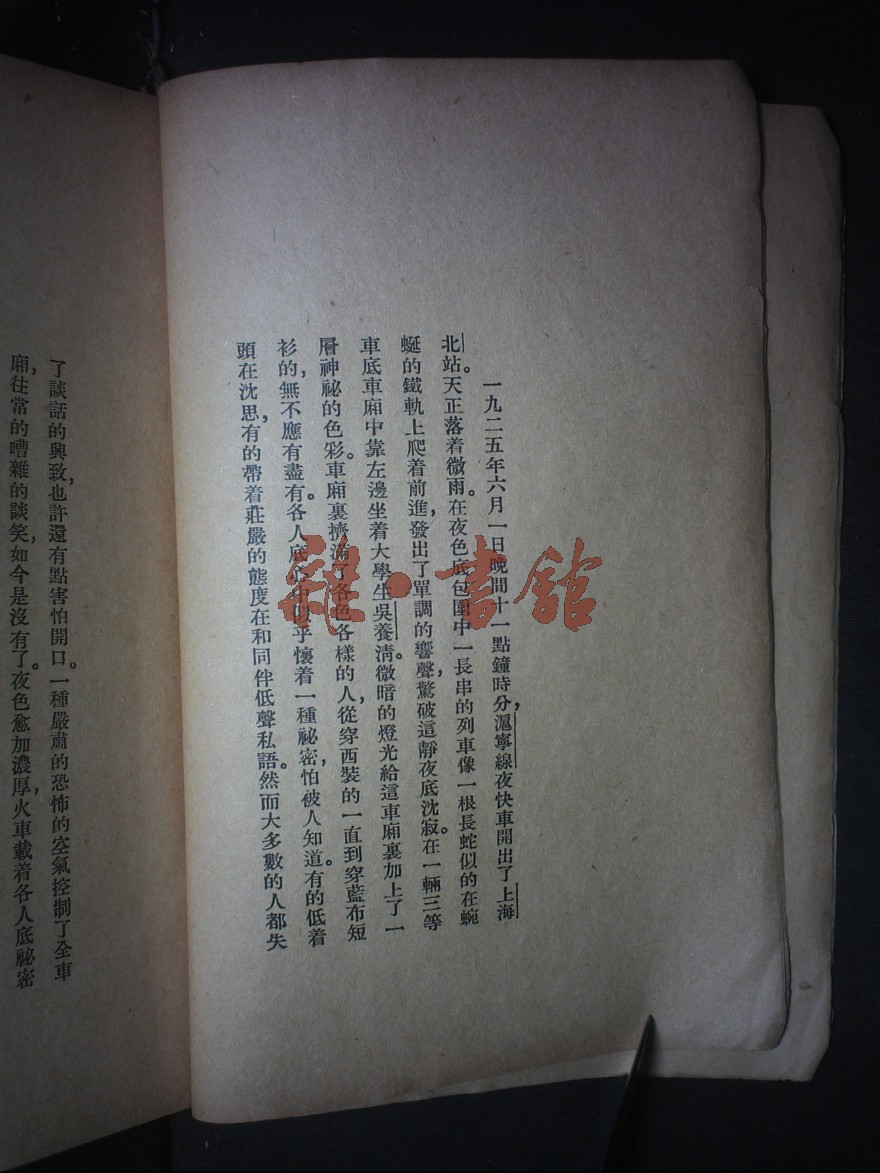 一九二五年六月一日晚間十一點鐘時分，滬寧線夜快車開出了上海
北站。天正落着微雨。在夜色底包圍中一長串的列車像一根長蛇似的在蜿
蜒的鐵軌上爬着前進，發出了單調的響聲，驚破這靜夜底沈寂。在一輛三等
車底車廂中靠左邊坐着大學生吳養清。微暗的燈光給這車廂裏加上了一
層神祕的色彩。車廂裏擠滿了各色各樣的人，從穿西裝的一直到穿藍布短
衫的，無不應有盡有。各人底心中似乎懷着一種祕密，怕被人知道。有的低着
頭在沈思，有的帶着莊嚴的態度在和同伴低聲私語。然而大多數的人都失
了談話的興致，也許還有點害怕開口。一種嚴肅的恐怖的空氣控制了全車
廂，往常的嘈雜的談笑，如今是沒有了。夜色愈加濃厚，火車載着各人底祕密
雜·書館